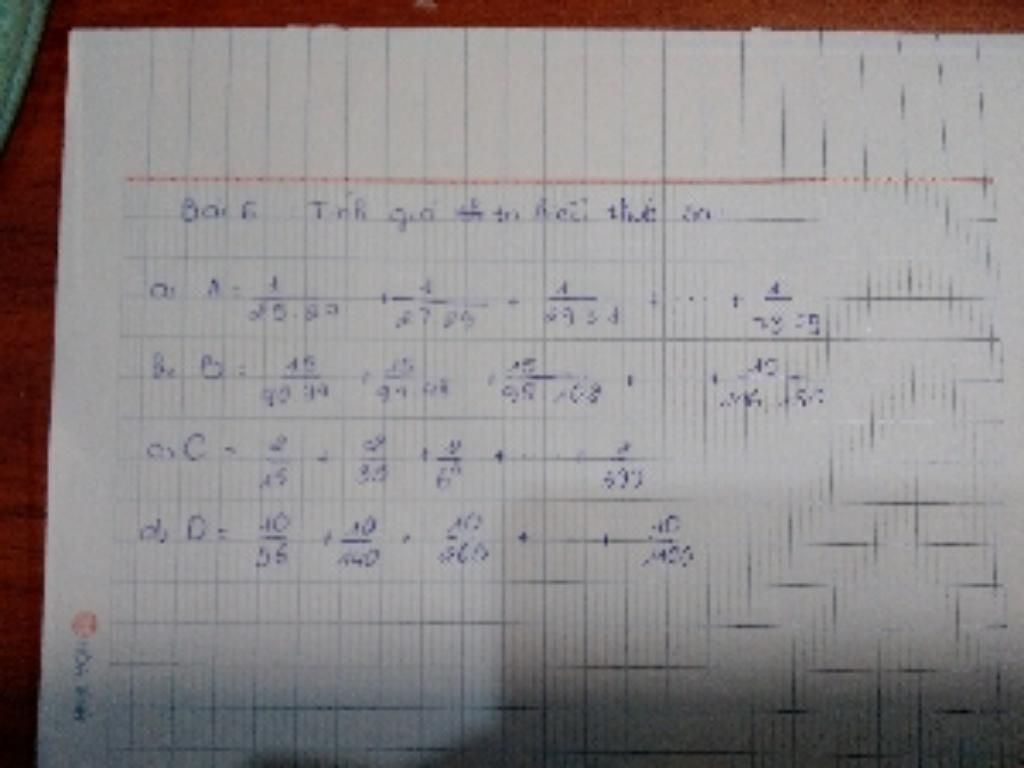 Tính giá trị biểu thức sau:
a, A = 1/25.27 + 1/27.29 + 1/29.31 + ... + 1/73.75
b, B = 15/90.94 + 15/94.98 + 15/98.102 + ... + 15/146.150
c, C = 2/15 + 2/35 + 2/63 + ... + 2/399
d, D = 10/56 + 10/140 + 10/260 + ... + 10/1400